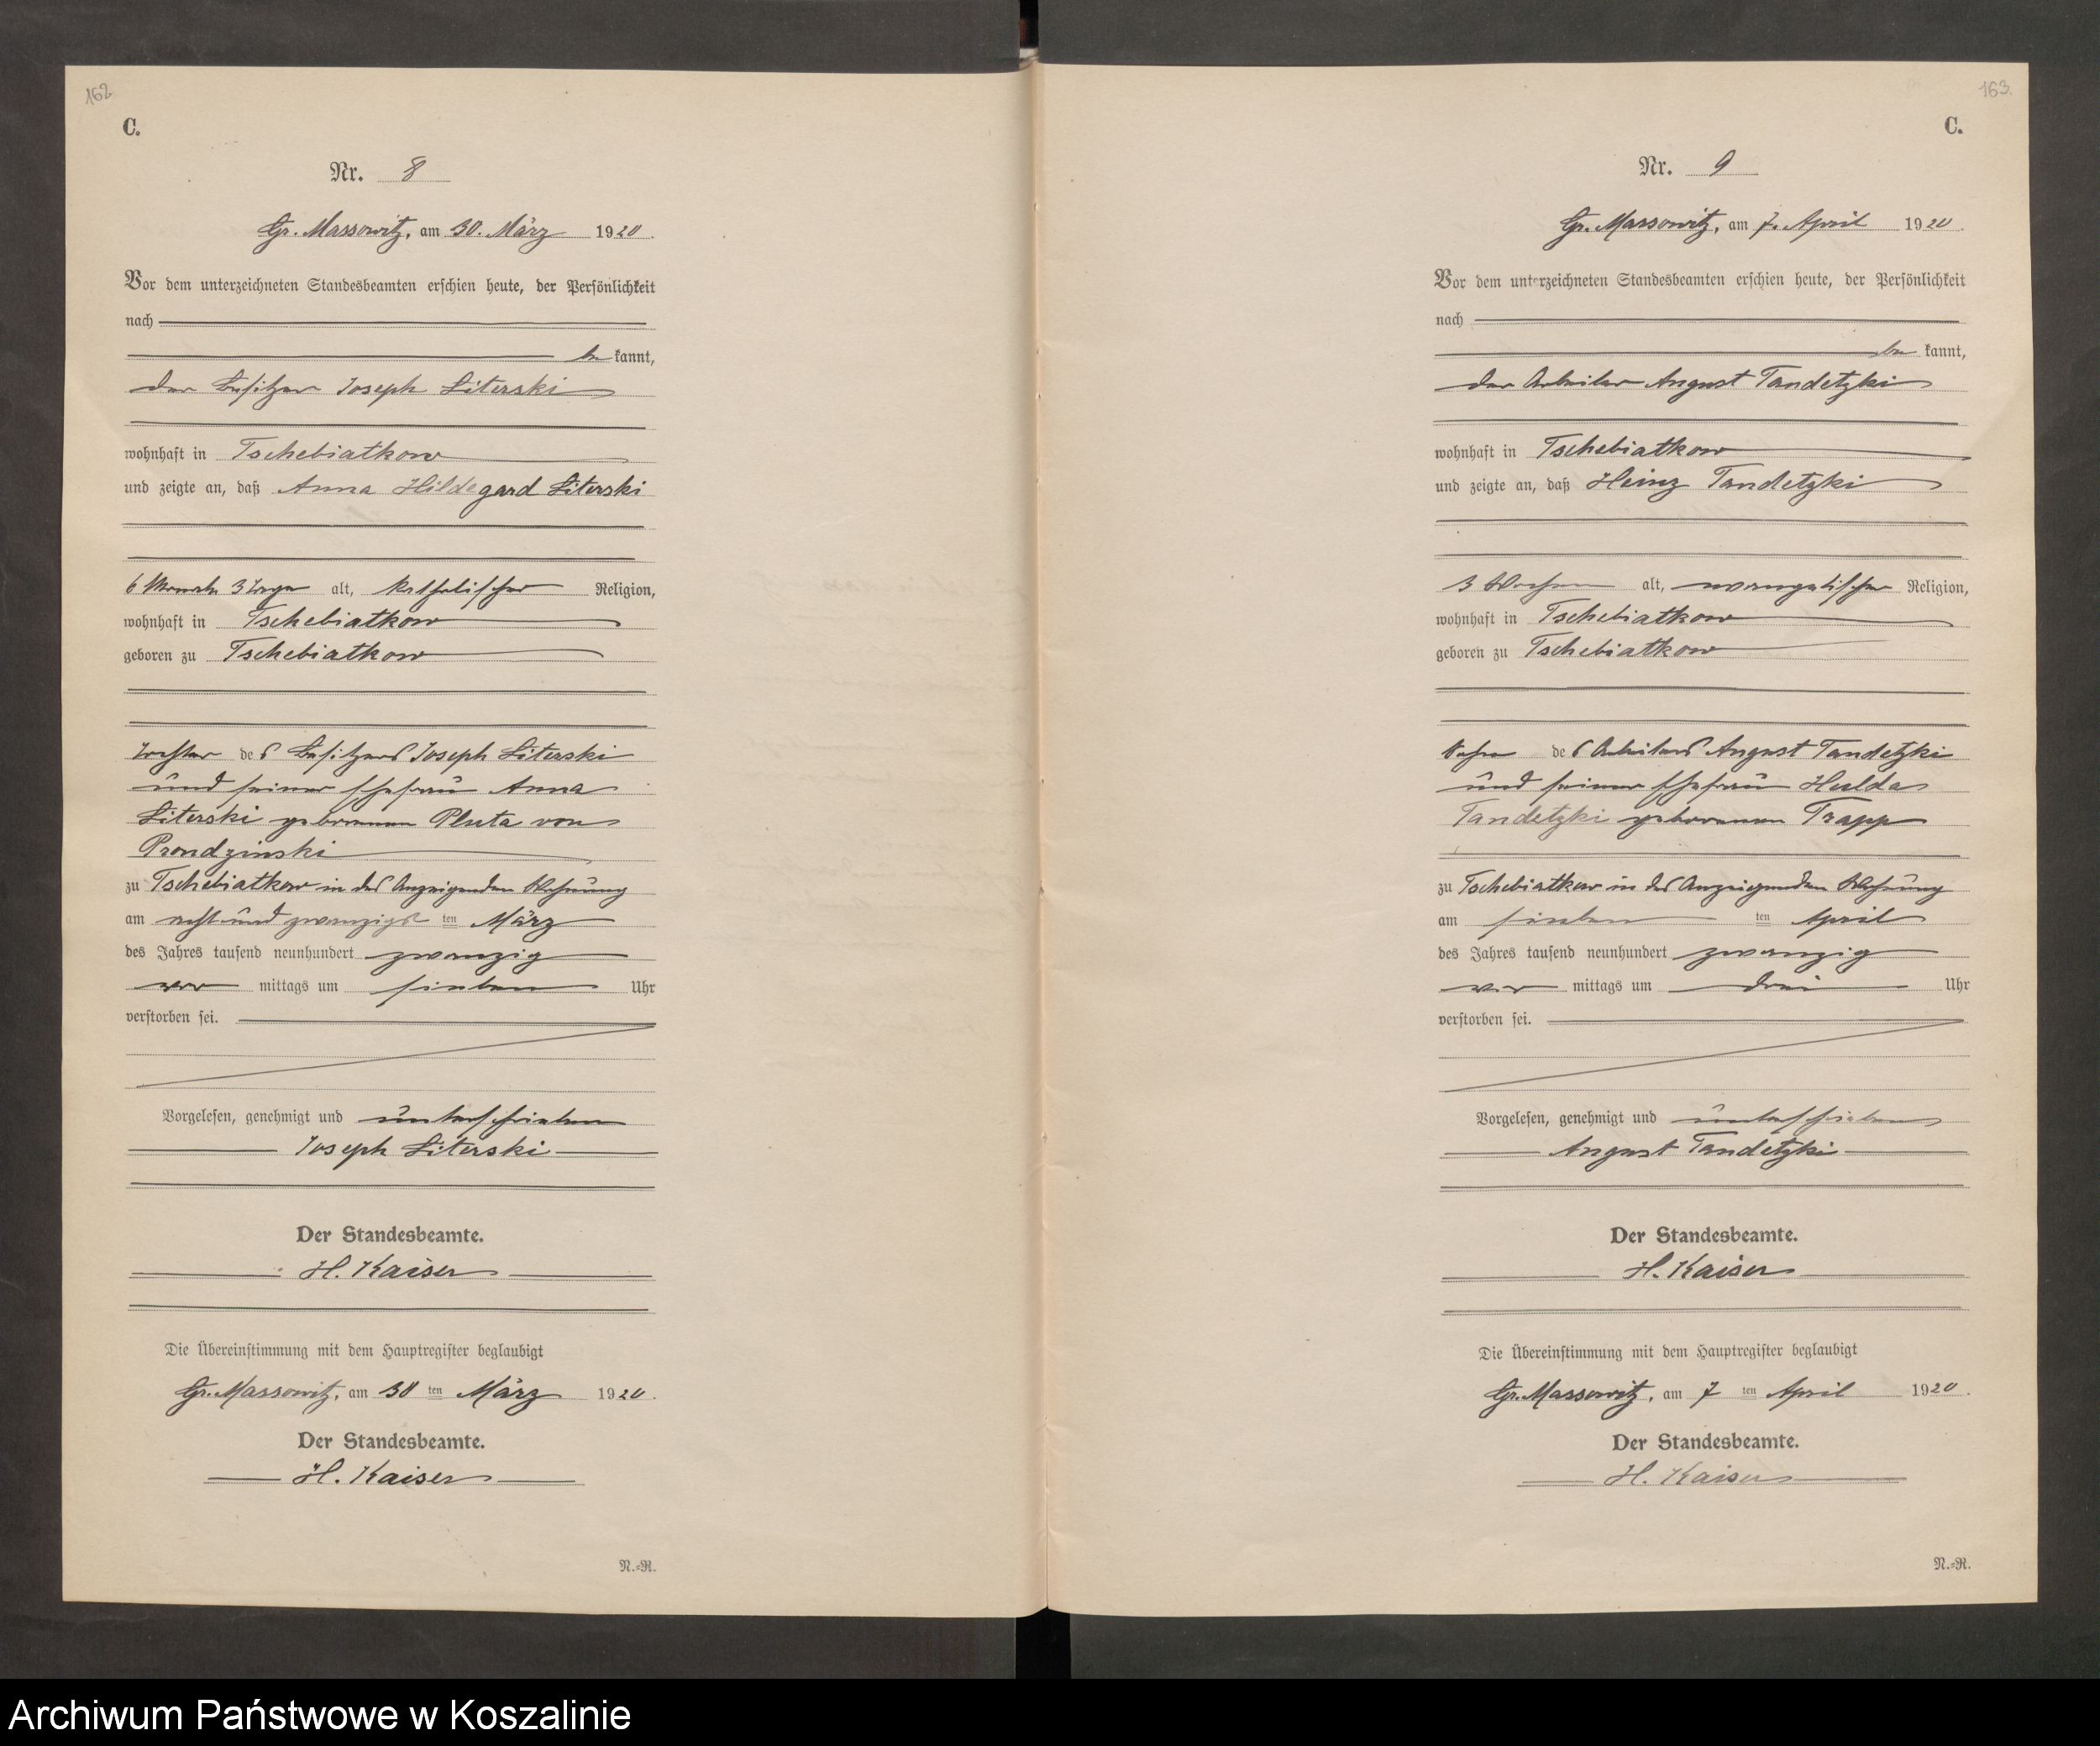 162
C.
Nr. 8
Gr. Massowitz, am 30. März 1920.
Vor dem unterzeichneten Standesbeamten erschien heute, der Persönlichkeit
nach
be kannt,
der Besitzer Joseph Literski
wohnhaft in Tschebiatkow
und zeigte an, daß Anna Hildegard Literski
6 Monate 3 Tage alt, katholischer Religion,
wohnhaft in Tschebiatkow
geboren zu Tschebiatkow
Tochter des Besitzers Joseph Literski
und seiner Ehefrau Anna
Literski geborenen Pluta von
Prondzinski
zu Tschebiatkow in des Anzeigenden Wohnung
am acht und zwanzigsten März
des Jahres tausend neunhundert zwanzig
vor mittags um sieben Uhr
verstorben sei.
Vorgelesen, genehmigt und unterschrieben
Joseph Literski
Der Standesbeamte.
H. Kaiser
Die Übereinstimmung mit dem Hauptregister beglaubigt
Gr. Massowitz, am 30 ten März 1920.
Der Standesbeamte.
H. Kaiser
N.=R.
163.
C.
Nr. 9
Gr. Massowitz, am 7. April 1920.
Vor dem unterzeichneten Standesbeamten erschien heute, der Persönlichkeit
nach
be kannt,
der Arbeiter August Tandetzki
wohnhaft in Tschebiatkow
und zeigte an, daß Heinz Tandetzki
3 Wochen alt, evangelischer Religion,
wohnhaft in Tschebiatkow
geboren zu Tschebiatkow
Sohn des Arbeiters August Tandetzki
und seiner Ehefrau Hulda
Tandetzki geborenen Trapp
zu Tschebiatkow in des Anzeigenden Wohnung
am sieben ten April
des Jahres tausend neunhundert zwanzig
vor mittags um drei Uhr
verstorben sei.
Vorgelesen, genehmigt und unterschrieben
August Tandetzki
Der Standesbeamte.
H. Kaiser
Die Übereinstimmung mit dem Hauptregister beglaubigt
Gr. Massowitz, am 7 ten April 1920.
Der Standesbeamte.
H. Kaiser
N.=R.
Archiwum Państwowe w Koszalinie